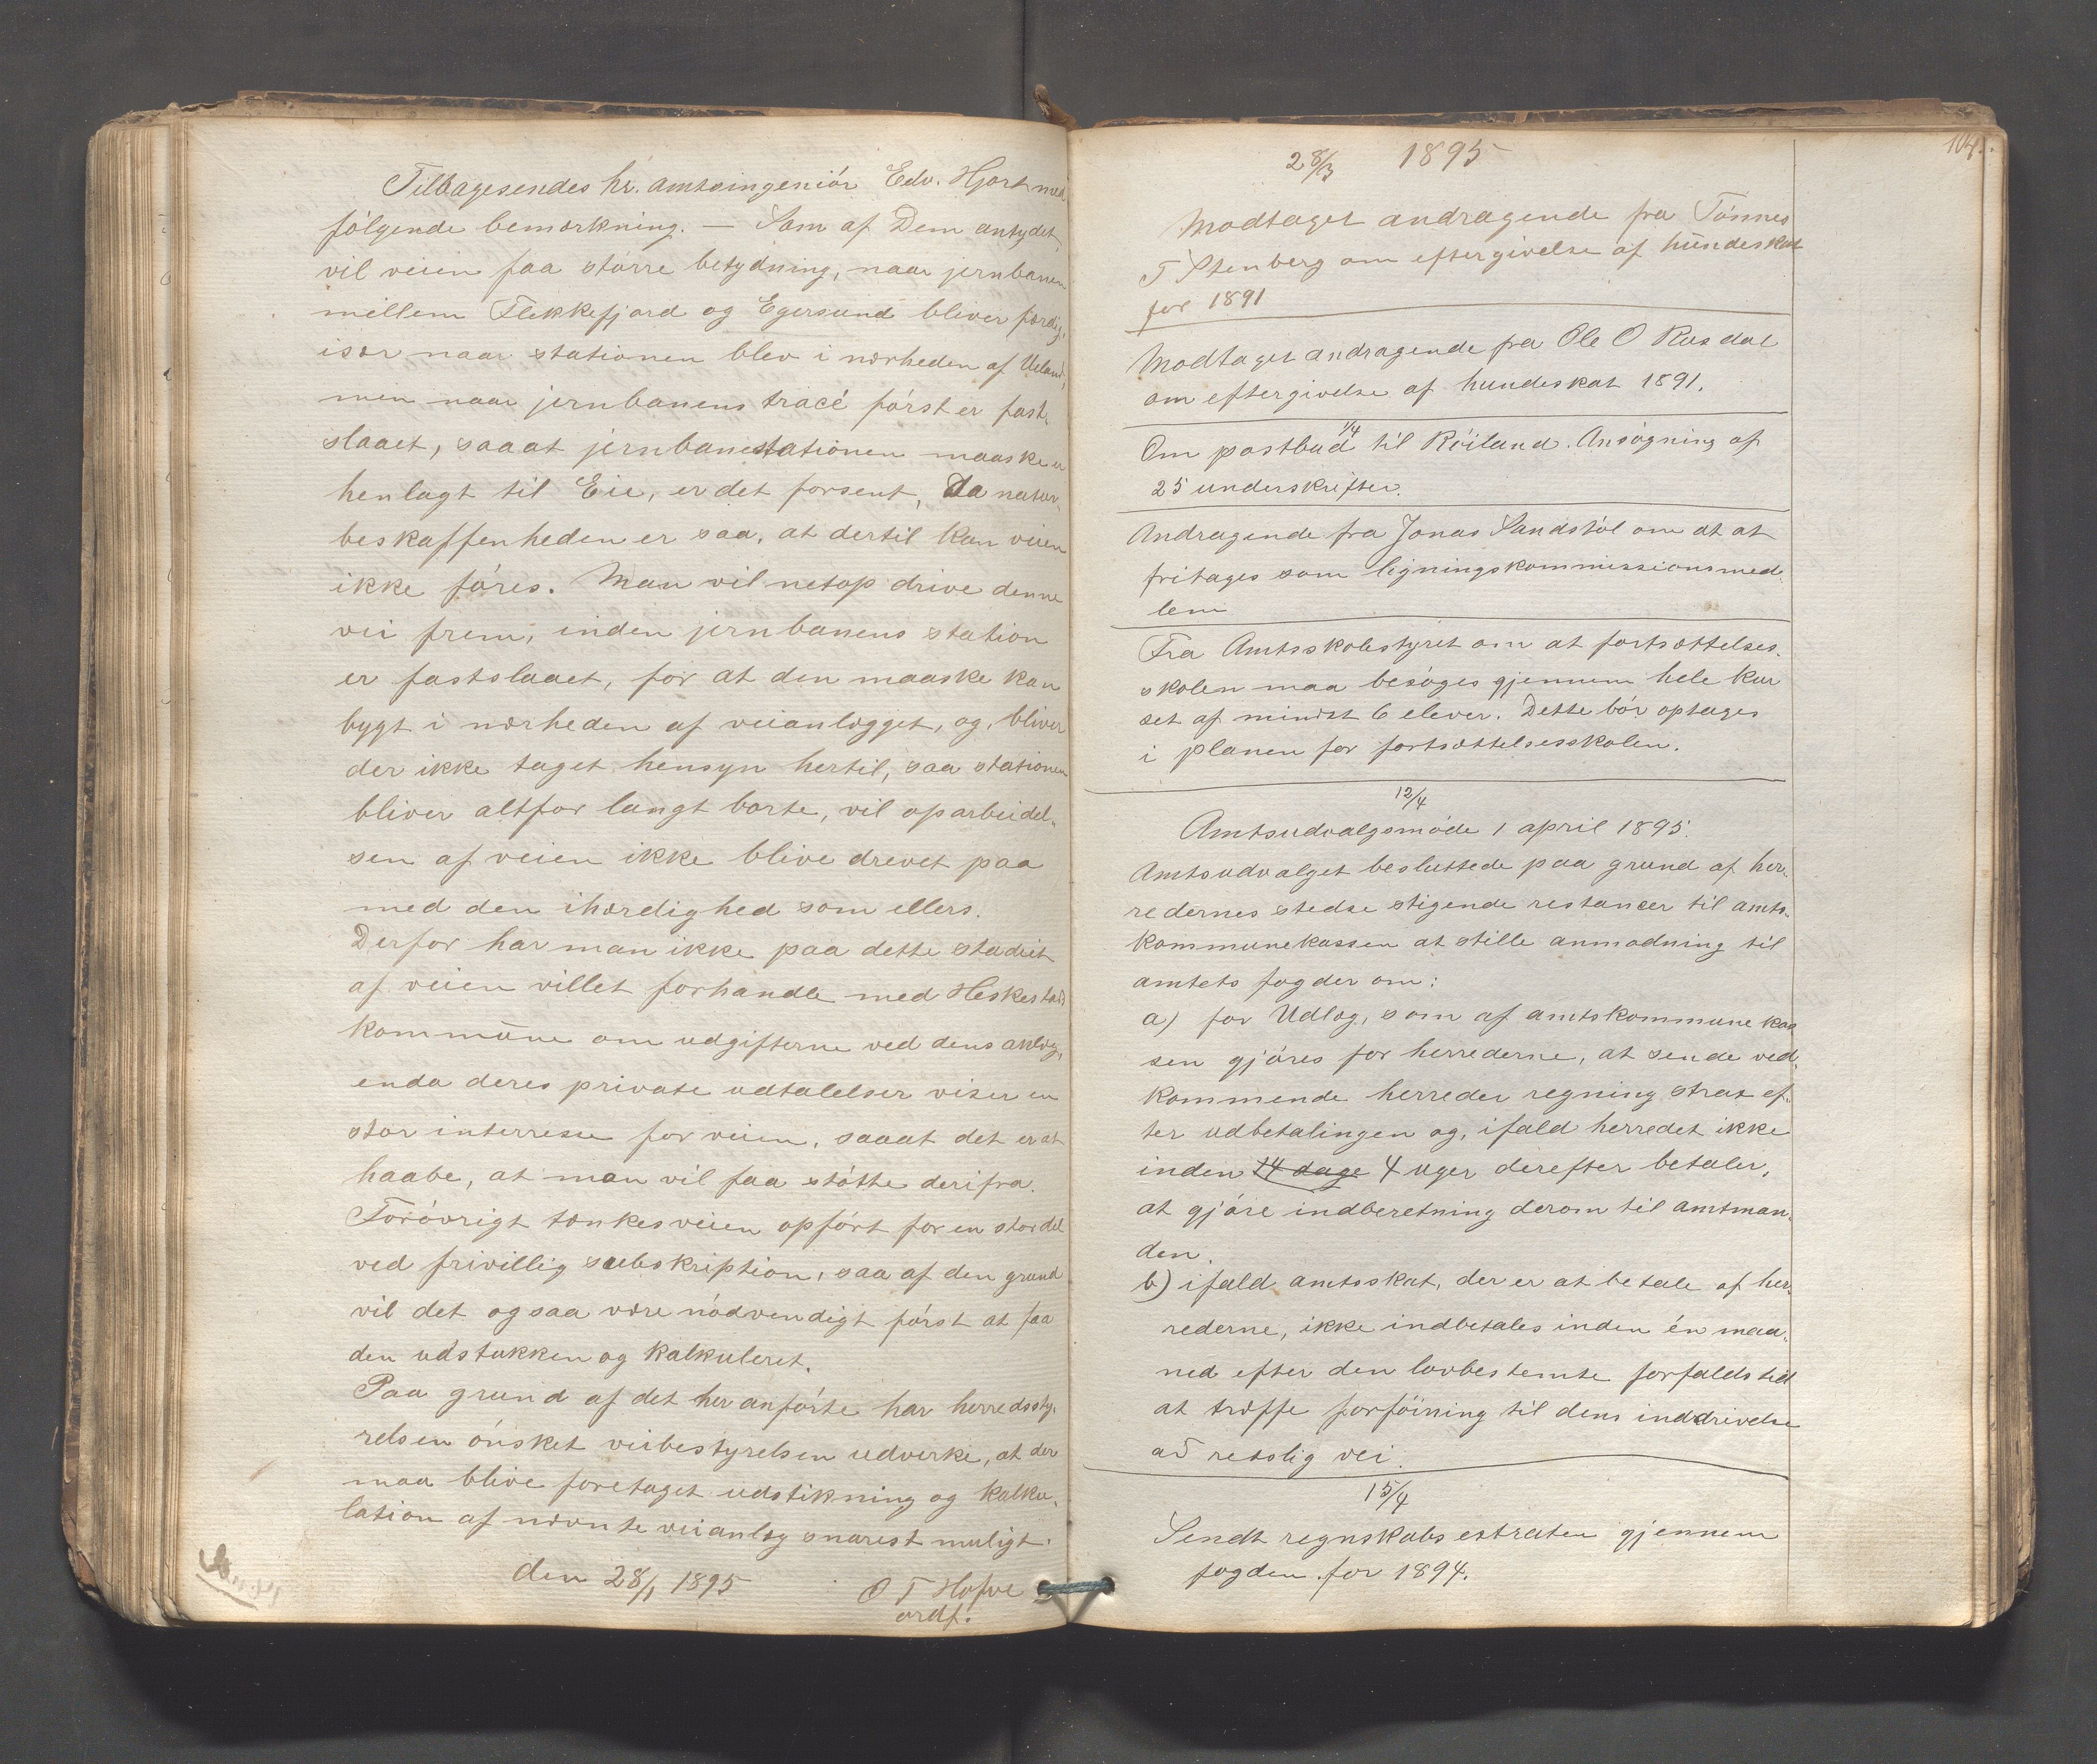 Tilbagesendes hr. amtsingeniór Edv. Hjort med
fólgende bemærkning. — Som af Dem antydet,
vil veien faa stórre betydning, naar jernbanen
mellem Flekkefjord og Egersund bliver færdig,
især naar stationen blev i nærheden af Ueland,
men naar jernbanens tracé fórst er fast-
slaaet, saaat jernbanestationen maaske er
henlagt til Eie, er det forsent, da natur-
beskaffenheden er saa, at dertil kan veien
ikke fóres. Man vil netop drive denne
vei frem, inden jernbanens station
er fastslaaet, for at den maaske kan
bygt i nærheden af veianlægget, og, bliver
der ikke taget hensyn hertil, saa stationen
bliver altfor langt borte, vil oparbeidel-
sen af veien ikke blive drevet paa
med den ihærdighed som ellers.
Derfor har man ikke paa dette stadiet
af veien villet forhandle med Heskestad
kommune om udgifterne ved dens anlæg,
enda deres private udtalelser viser en
stor interresse for veien, saaat det er at
haabe, at man vil faa stótte derifra.
Forövrigt tænkes veien opfört for en stor del
ved frivillig subskription, saa af den grund
vil det ogsaa være nódvendigt fórst at faa
den udstukken og kalkuleret.
Paa grund af det her anfórte har herredssty-
relsen ónsket veibestyrelsen udverke, at der
maa blive foretaget udstikning og kalku-
lation af nævnte veianlæg snarest muligt.
den 28/1 1895
O T Hofve
ordf.
104.
28/3 1895
Modtaget andragende fra Tónnes
T Stenberg om eftergivelse af hundeskat
for 1891
Modtaget andragende fra Ole O Rusdal
om eftergivelse af hundeskat 1891.
1/4
Om postbud til Röiland. Ansögning af
25 underskrifter.
Andragende fra Jonas Sandstöl om at at
fritages som ligningskommissionsmed-
lem
Fra Amtsskolestyret om at fortsættelses-
skolen maa besóges gjennem hele kur
set af mindst 6 elever. Dette bör optages
i planen for fortsættelsesskolen.
12/4
Amtsudvalgsmóde 1 april 1895.
Amtsudvalget besluttede paa grund af her-
redernes stedse stigende restancer til amts-
kommunekassen at stille anmodning til
amtets fogder om:
a) for Udlæg, som af amtskommunekas
sen gjóres for herrederne, at sende ved-
kommende herreder regning strax ef-
ter udbetalingen og, ifald herredet ikke
inden 14 dage 4 uger derefter betaler,
at gjóre indberetning derom til amtman-
den.
b) ifald amtsskat, der er at betale af her-
rederne, ikke indbetales inden én maa-
ned efter den lovbestemte forfaldstid
at træffe forföining til dens inddrivelse
ad retslig vei.
15/4
Sendt regnskabsextraten gjennem
fogden for 1894.